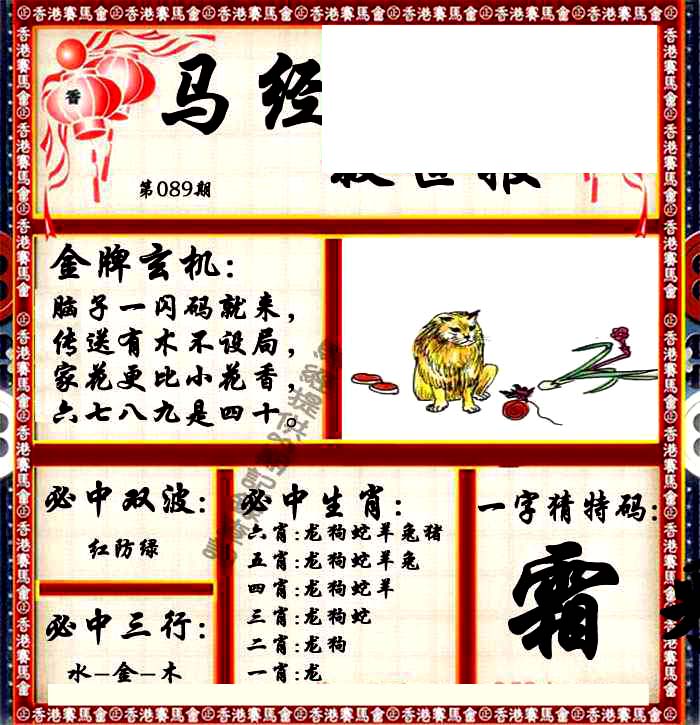 ㊣香港賽馬會㊣香港賽馬會㊣香港賽馬會㊣香港賽馬會㊣香港賽馬會㊣香港賽馬會㊣香港賽馬會㊣
香
马经
救世报
第089期
金牌玄机:
脑子一闪码就来,
传送有木不设局,
家花更比小花香,
六七八九是四十。
必中双波:
红防绿
必中三行:
水-金-木
必中生肖:
六肖:龙狗蛇羊兔猪
五肖:龙狗蛇羊兔
四肖:龙狗蛇羊
三肖:龙狗蛇
二肖:龙狗
一肖:龙
一字猜特码:
霜